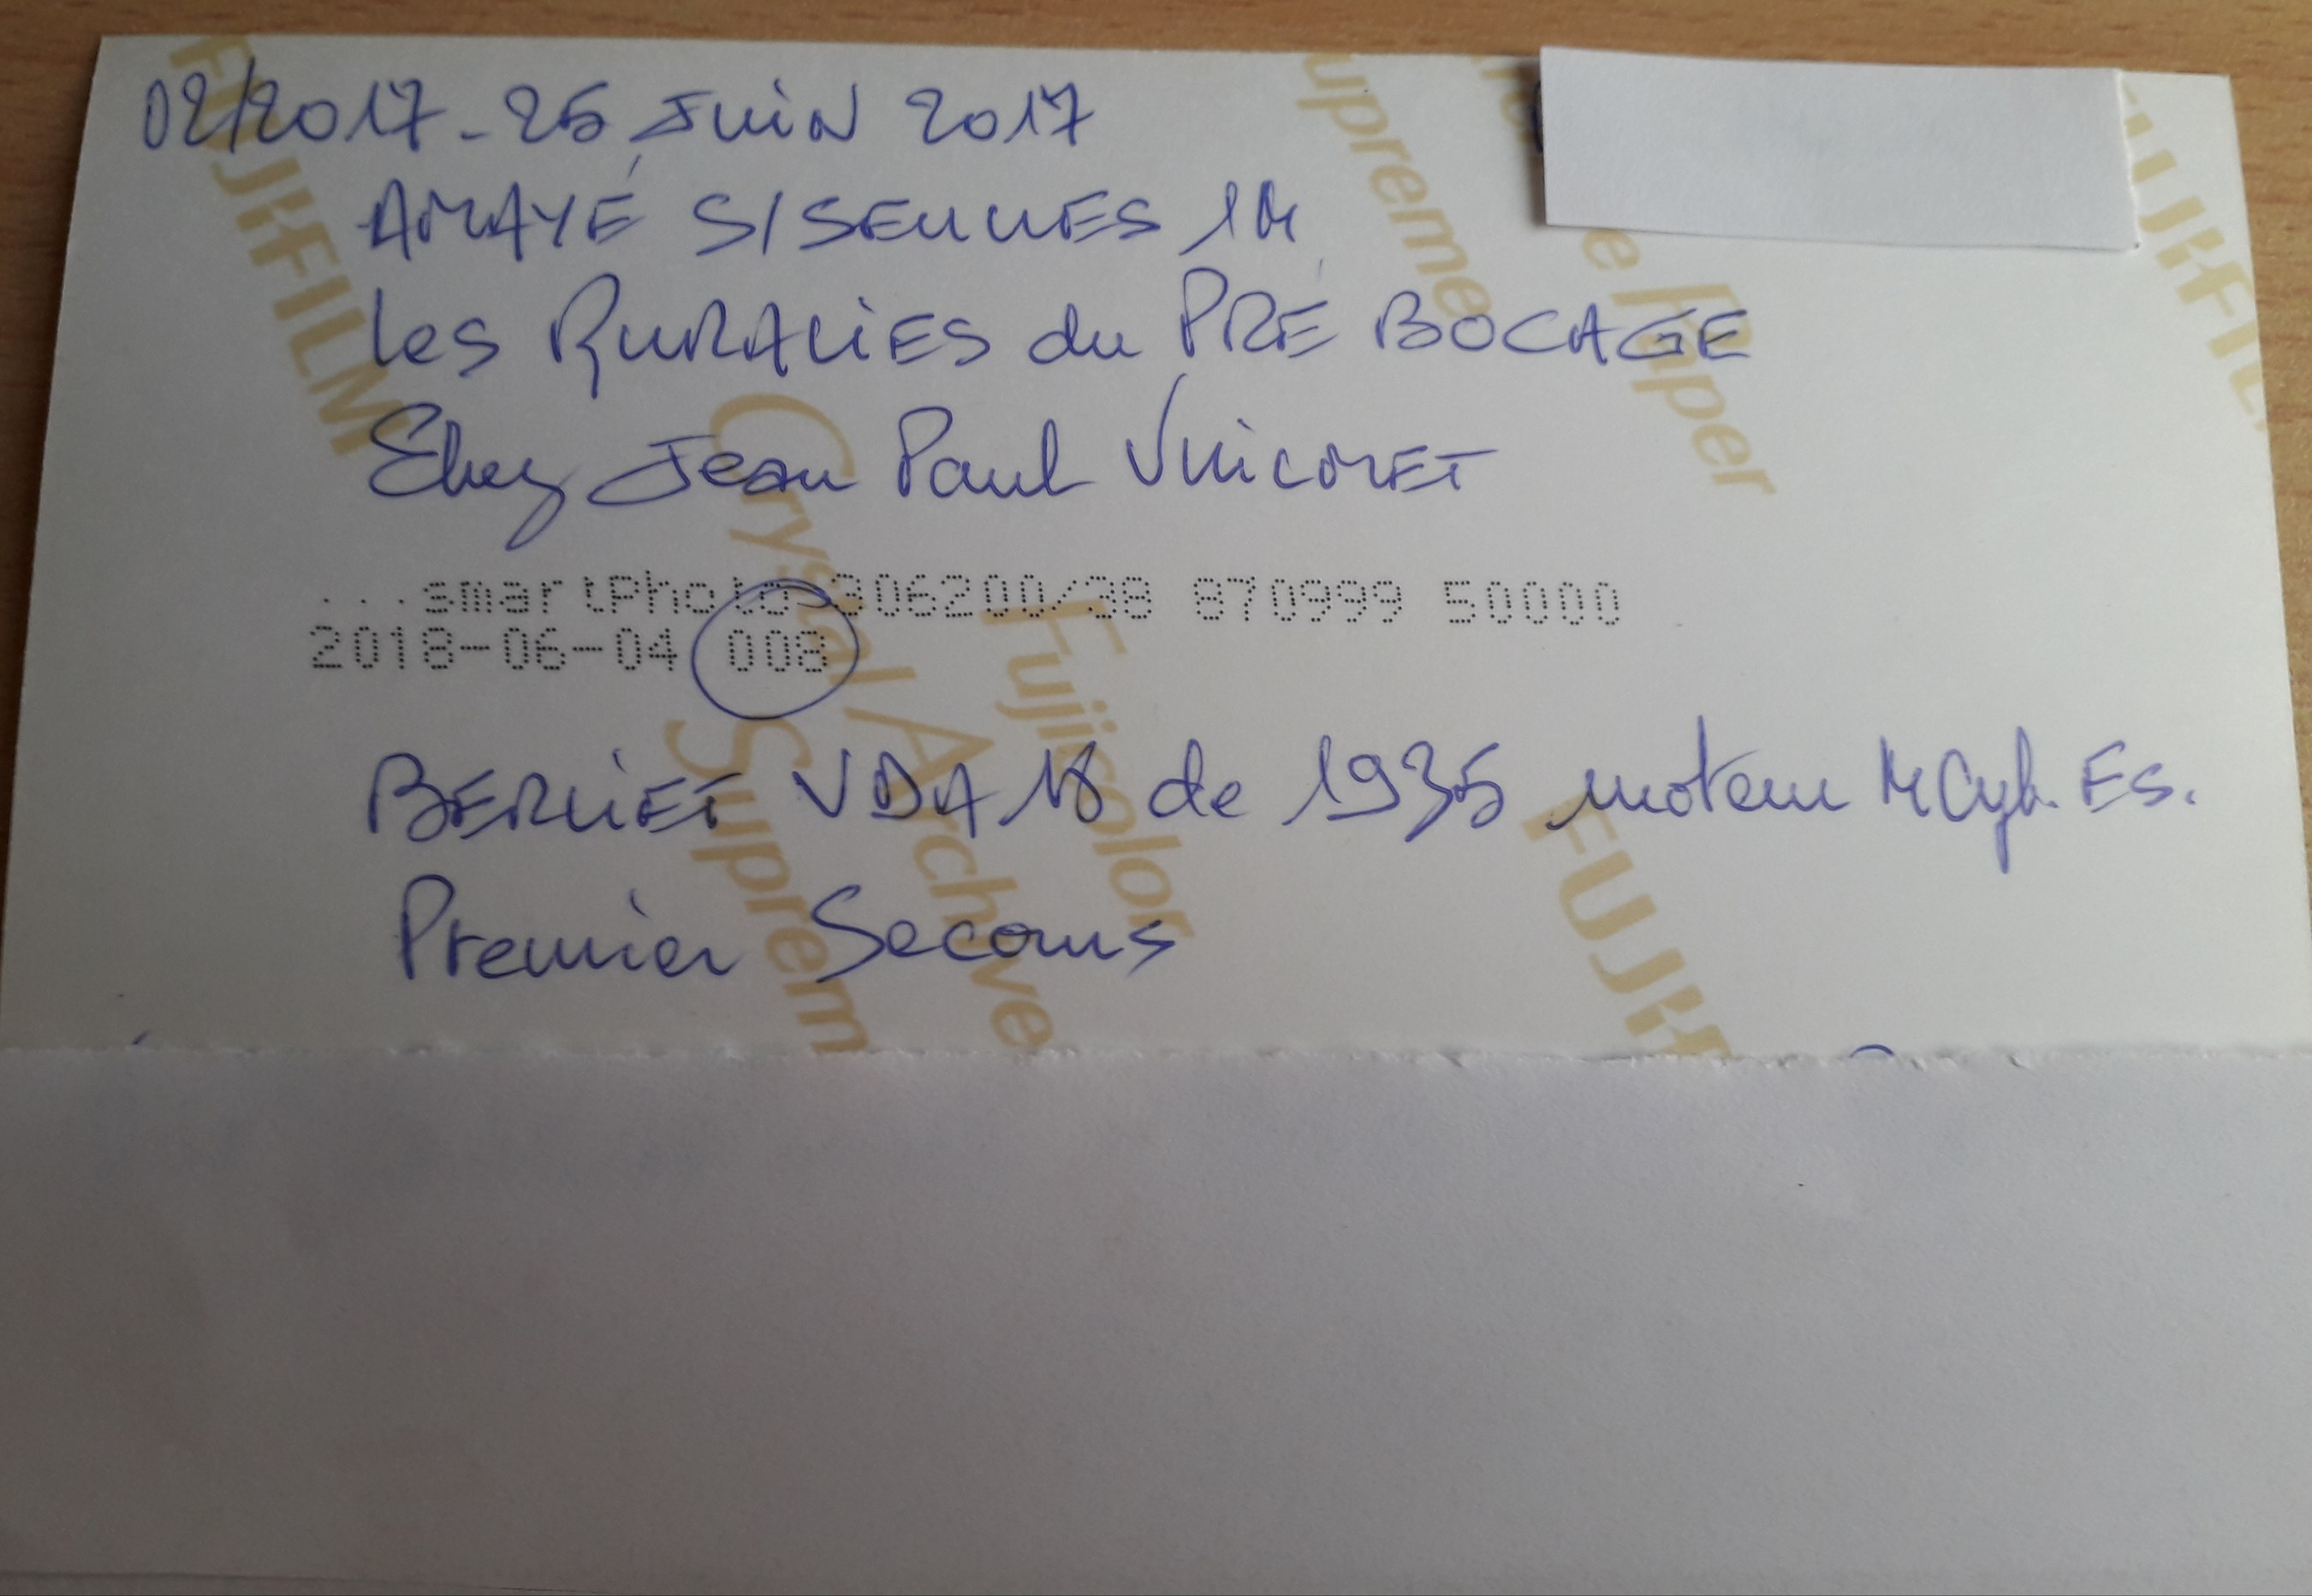 02/2017 - 25 JUIN 2017
AMAYÉ S/SEULLES 14
les RURALIES du PRÉ BOCAGE
Chez Jean Paul
...smartPhoto 306200/38 870999 50000
2018-06-04 008
BERLIET VDA 18 de 1935 moteur 4 Cyl. Es.
Premier Secours
FUJIFILM
Fujicolor
Crystal Archive
Supreme
upreme
e Paper
FUJIFIL
FUJIF